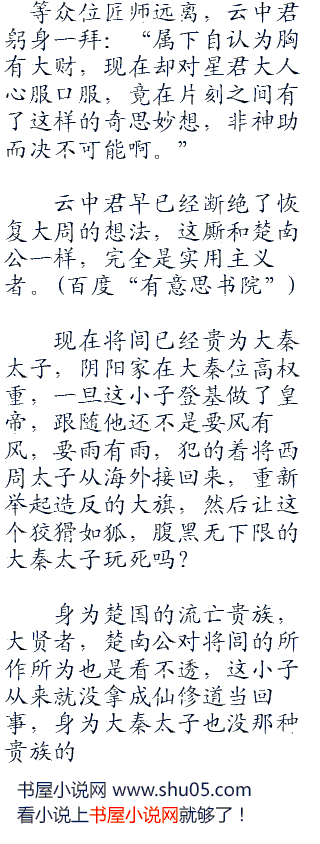 等众位匠师远离，云中君
躬身一拜：“属下自认为胸
有大财，现在却对星君大人
心服口服，竟在片刻之间有
了这样的奇思妙想，非神助
而决不可能啊。”
云中君早已经断绝了恢
复大周的想法，这厮和楚南
公一样，完全是实用主义
者。(百度“有意思书院”)
现在将闾已经贵为大秦
太子，阴阳家在大秦位高权
重，一旦这小子登基做了皇
帝，跟随他还不是要风有
风，要雨有雨，犯的着将西
周太子从海外接回来，重新
举起造反的大旗，然后让这
个狡猾如狐，腹黑无下限的
大秦太子玩死吗？
身为楚国的流亡贵族，
大贤者，楚南公对将闾的所
作所为也是看不透，这小子
从来就没拿成仙修道当回
事，身为大秦太子也没那种
贵族的
书屋小说网 www.shu05.com
看小说上书屋小说网就够了！